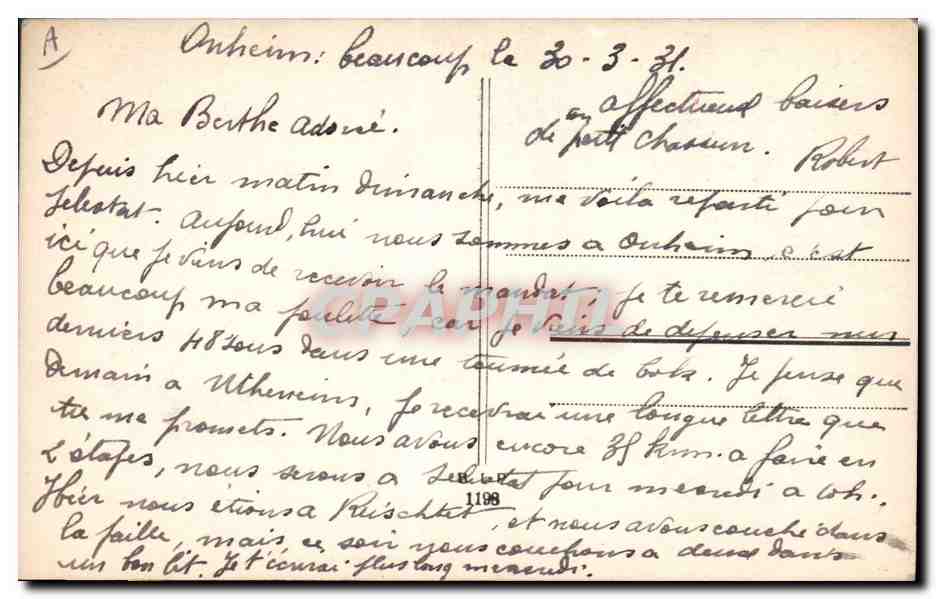 A
Onheim: beaucoup le 30-3-31.
affectueux baisers
de ton petit chasseur.
Robert
Ma Berthe adorée.
Depuis hier matin dimanche, me voila reparti pour
Selestat. Aujourd'hui nous sommes a Onheim, c'est
ici que je viens de recevoir le mandat; je te remercie
beaucoup ma poulette, car je viens de depenser mes
derniers 48 sous dans une tournée de bock. Je pense que
demain a Uthenheim, je recevrai une longue lettre que
tu me promets. Nous avons encore 35 km. a faire en
2 étapes, nous serons a Selestat pour mercredi a 10h.
Hier nous étions a, et nous avons couché dans
la paille, mais ce soir nous couchons a deux dans
un bon lit. Je t'écrirai plus long mercredi.
1198
CPAPHIL